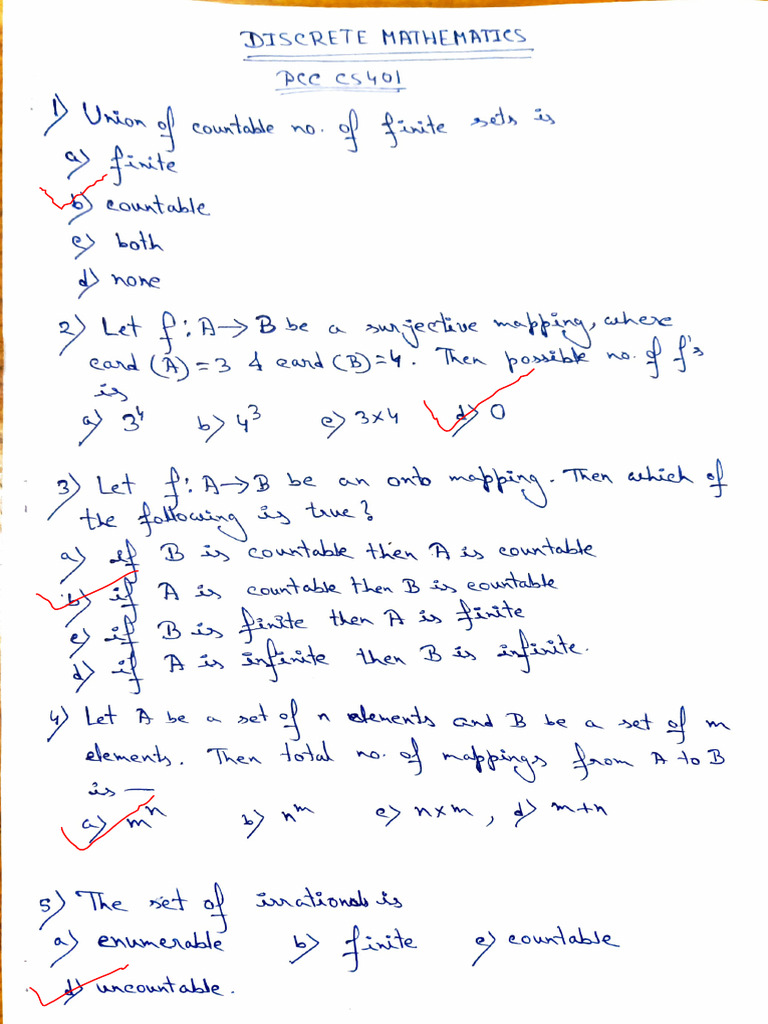 DISCRETE MATHEMATICS
PCC CS401
1) Union of countable no. of finite sets is
a) finite
b) countable
c) both
d) none
2) Let f: A→B be a surjective mapping, where
card (A) = 3 & card (B) = 4. Then possible no. of f's
is
a) 3⁴ b) 4³ c) 3×4 d) 0
3) Let f: A→B be an onto mapping. Then which of
the following is true?
a) if B is countable then A is countable
b) if A is countable then B is countable
c) if B is finite then A is finite
d) if A is infinite then B is infinite.
4) Let A be a set of n elements and B be a set of m
elements. Then total no. of mappings from A to B
is —
a) mⁿ b) nᵐ c) n×m, d) m+n
5) The set of irrationals is
a) enumerable b) finite c) countable
d) uncountable.